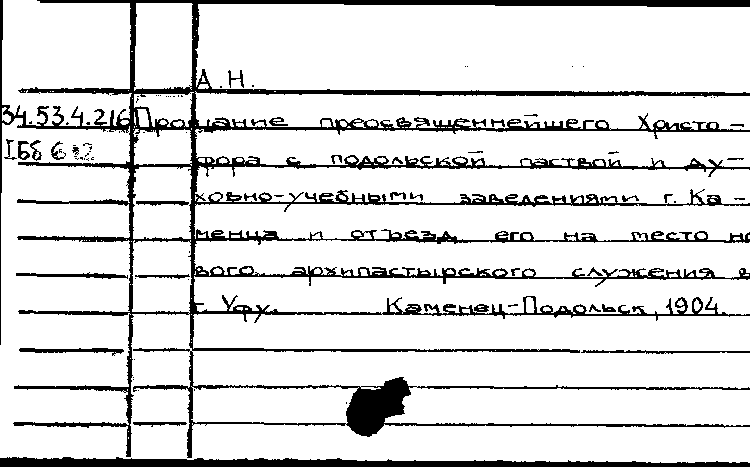 А.Н.
34.53.4.216 Прощание преосвященнейшего Христо-
фора с подольской паствой и ду-
ховно-учебными заведениями г. Ка-
менца и отъезд его на место но
вого архипастырского служения в
г. Уфу. Каменец-Подольск, 1904.